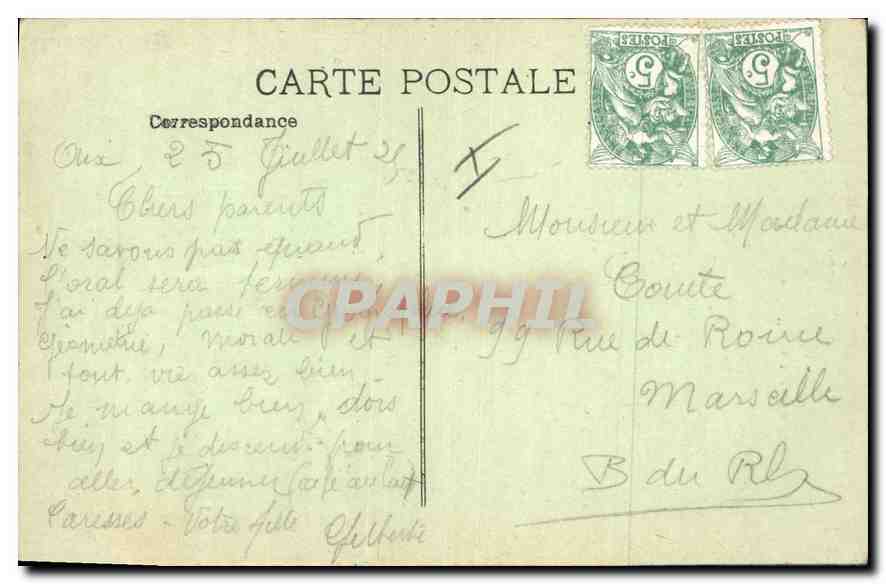 CARTE POSTALE
Correspondance
Aix, 25 Juillet 25
Chers parents
Ne savons pas quand
l'oral sera terminé,
J'ai déjà passé en
géométrie, morale et
tout va assez bien
Je mange bien, dors
bien et je descends pour
aller déjeuner
Caresses - Votre fille
Gilberte
I
Monsieur et Madame
Comte
99 Rue de Rome
Marseille
B du Rh
POSTES
5c
POSTES
5c
CPAPHIL